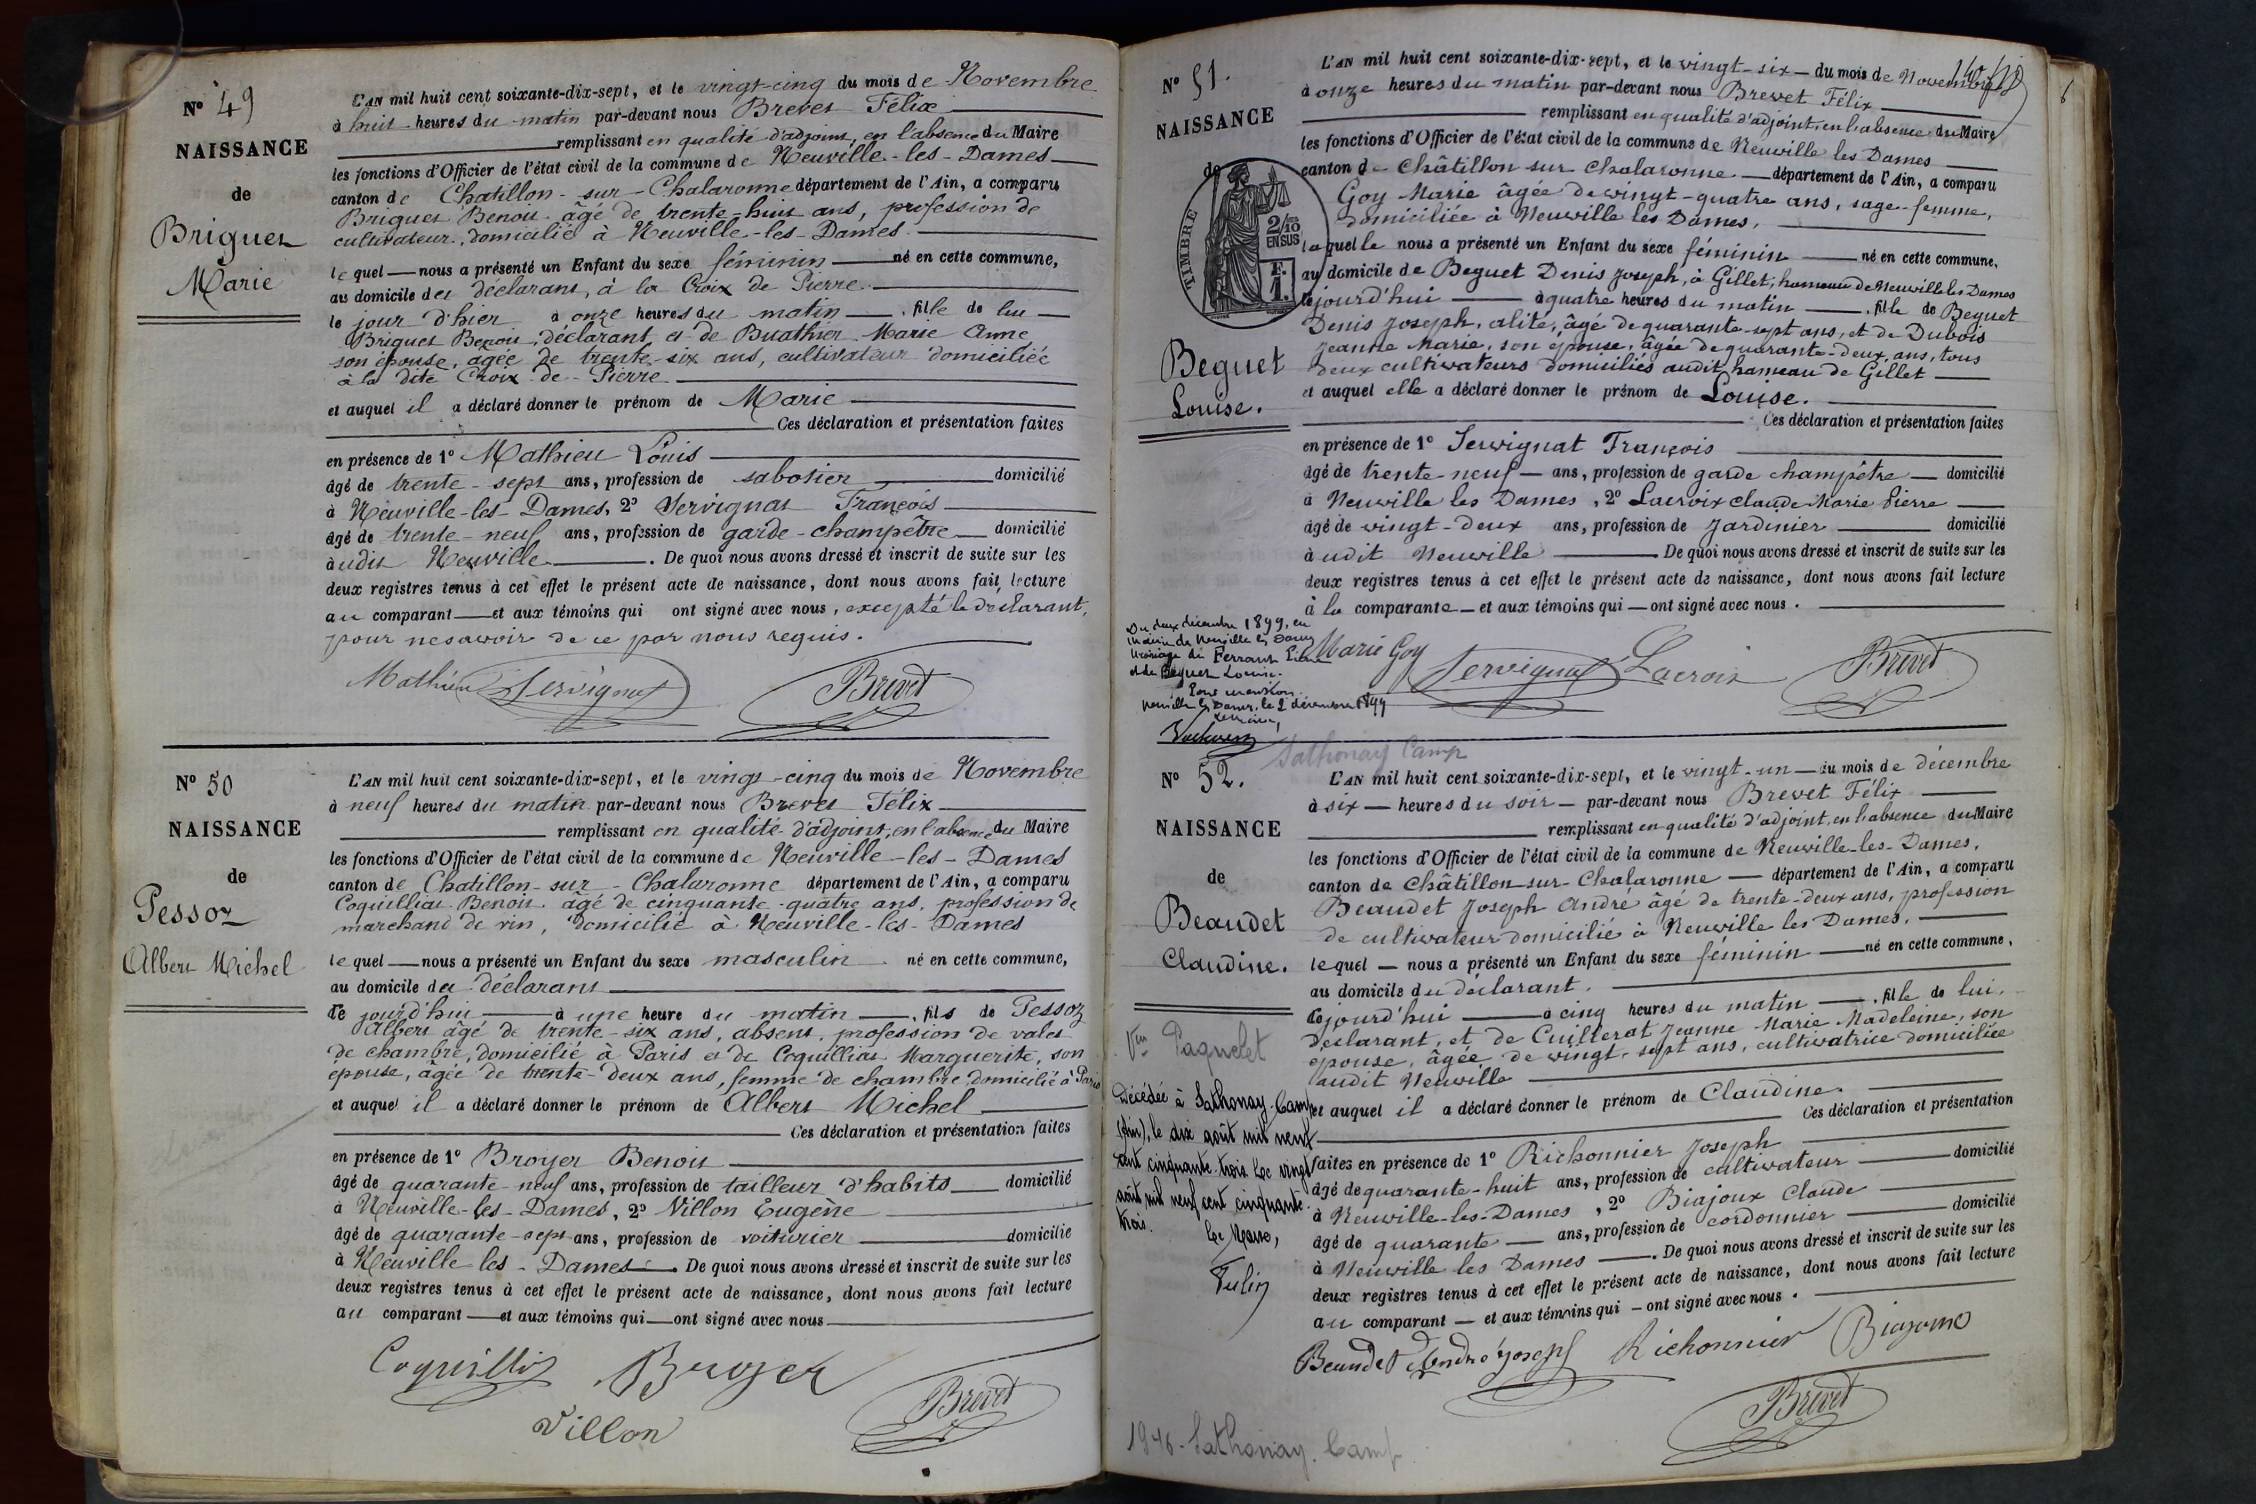 N° 49
NAISSANCE
de
Briguet
Marie
L'AN mil huit cent soixante-dix-sept, et le vingt-cinq du mois de Novembre
à huit heures du matin par-devant nous Brevet Félix
remplissant en qualité d'adjoint, en l'absence du Maire
les fonctions d'Officier de l'état civil de la commune de Neuville-les-Dames
canton de Chatillon-sur-Chalaronne département de l'Ain, a comparu
Briguet Benoit âgé de trente-huit ans, profession de
cultivateur, domicilié à Neuville-les-Dames
lequel nous a présenté un Enfant du sexe féminin né en cette commune,
au domicile des déclarant, à la Croix de Pierre
le jour d'hier à onze heures du matin, fille de lui
Briguet Benoit, déclarant et de Buathier Marie Anne
son épouse, âgée de trente-six ans, cultivateur domiciliée
à la dite Croix de Pierre
et auquel il a déclaré donner le prénom de Marie
Ces déclaration et présentation faites
en présence de 1° Mathieu Louis
âgé de trente-sept ans, profession de sabotier domicilié
à Neuville-les-Dames, 2° Servignat François
âgé de trente-neuf ans, profession de garde-champêtre domicilié
à udit Neuville. De quoi nous avons dressé et inscrit de suite sur les
deux registres tenus à cet effet le présent acte de naissance, dont nous avons fait lecture
au comparant et aux témoins qui ont signé avec nous, excepté le déclarant,
pour ne savoir de ce par nous requis.
Mathieu Servignat Brevet
N° 50
NAISSANCE
de
Pessoz
Albert Michel
L'AN mil huit cent soixante-dix-sept, et le vingt-cinq du mois de Novembre
à neuf heures du matin par-devant nous Brevet Félix
remplissant en qualité d'adjoint, en l'absence du Maire
les fonctions d'Officier de l'état civil de la commune de Neuville-les-Dames
canton de Chatillon-sur-Chalaronne département de l'Ain, a comparu
Coquilliat Benoit âgé de cinquante-quatre ans, profession de
marchand de vin, domicilié à Neuville-les-Dames
lequel nous a présenté un Enfant du sexe masculin né en cette commune,
au domicile du déclarant
ce jourd'hui à une heure du matin, fils de Pessoz
Albert âgé de trente-six ans, absent, profession de valet
de chambre, domicilié à Paris et de Coquilliat Marguerite, son
épouse, âgée de trente-deux ans, femme de chambre, domicilié à Paris
et auquel il a déclaré donner le prénom de Albert Michel
Ces déclaration et présentation faites
en présence de 1° Broyer Benoit
âgé de quarante-neuf ans, profession de tailleur d'habits domicilié
à Neuville-les-Dames, 2° Villon Eugène
âgé de quarante-sept ans, profession de voiturier domicilié
à Neuville les-Dames. De quoi nous avons dressé et inscrit de suite sur les
deux registres tenus à cet effet le présent acte de naissance, dont nous avons fait lecture
au comparant et aux témoins qui ont signé avec nous
Coquilliat Broyer
Villon Brevet
N° 51.
NAISSANCE
de
TIMBRE
2/10
EN SUS
Beguet
Louise.
L'AN mil huit cent soixante-dix-sept, et le vingt-six du mois de Novembre
à onze heures du matin par-devant nous Brevet Félix
remplissant en qualité d'adjoint, en l'absence du Maire
les fonctions d'Officier de l'état civil de la commune de Neuville les Dames
canton de Châtillon sur Chalaronne département de l'Ain, a comparu
Goy Marie âgée de vingt-quatre ans, sage-femme,
domiciliée à Neuville les Dames,
laquelle nous a présenté un Enfant du sexe féminin né en cette commune,
au domicile de Beguet Denis Joseph, à Gillet, hameau de Neuville les Dames
cejourd'hui à quatre heures du matin, fille de Beguet
Denis Joseph, alité, âgé de quarante-sept ans, et de Dubois
Jeanne Marie, son épouse, âgée de quarante-deux ans, tous
deux cultivateurs domiciliés audit hameau de Gillet
et auquel elle a déclaré donner le prénom de Louise.
Ces déclaration et présentation faites
en présence de 1° Servignat François
âgé de trente-neuf ans, profession de garde champêtre domicilié
à Neuville les Dames, 2° Lacroix Claude Marie Pierre
âgé de vingt-deux ans, profession de Jardinier domicilié
à udit Neuville De quoi nous avons dressé et inscrit de suite sur les
deux registres tenus à cet effet le présent acte de naissance, dont nous avons fait lecture
à la comparante et aux témoins qui ont signé avec nous.
Du deux décembre 1899, en
mairie de Neuville les Dames
Mariage de Ferrant
et de Beguet Louise.
Pour mention.
Neuville les Dames, le 2 décembre 1899
Le Maire,
Marie Goy Servignat Lacroix Brevet
Sathonay Camp
N° 52.
NAISSANCE
de
Beaudet
Claudine.
L'AN mil huit cent soixante-dix-sept, et le vingt-un du mois de décembre
à six heures du soir par-devant nous Brevet Félix
remplissant en qualité d'adjoint, en l'absence du Maire
les fonctions d'Officier de l'état civil de la commune de Neuville-les-Dames,
canton de Châtillon-sur-Chalaronne département de l'Ain, a comparu
Beaudet Joseph André âgé de trente-deux ans, profession
de cultivateur domicilié à Neuville les Dames,
lequel nous a présenté un Enfant du sexe féminin né en cette commune,
au domicile du déclarant.
cejourd'hui à cinq heures du matin, fille de lui,
déclarant, et de Cuillerat Jeanne Marie Madeleine, son
épouse, âgée de vingt-sept ans, cultivatrice domiciliée
audit Neuville
et auquel il a déclaré donner le prénom de Claudine.
Ces déclaration et présentation
faites en présence de 1° Richonnier Joseph
âgé de quarante-huit ans, profession de cultivateur domicilié
à Neuville-les-Dames, 2° Biajoux Claude
âgé de quarante ans, profession de cordonnier domicilié
à Neuville les Dames. De quoi nous avons dressé et inscrit de suite sur les
deux registres tenus à cet effet le présent acte de naissance, dont nous avons fait lecture
au comparant et aux témoins qui ont signé avec nous.
Vve Paquelet
Décédée à Sathonay-Camp
(Ain), le dix août mil neuf
cent cinquante-trois. Le vingt
août mil neuf cent cinquante
trois.
Le Maire,
Tulin
Beaudet André Joseph Richonnier Biajoux
Brevet
1946-Sathonay. Camp